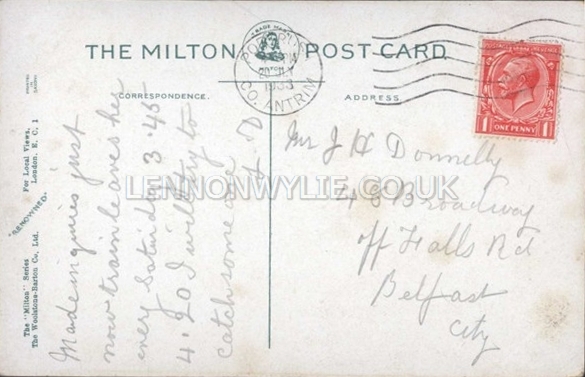 THE MILTON
TRADE MARK
POST CARD.
CORRESPONDENCE.
ADDRESS.
CO. ANTRIM
1933
ONE PENNY
1 1
Made inquiries just
now train leaves here
every Saturday 3.45
4.20 I will try to
catch some one
Mr J H Donnelly
48 Broadway
off Falls Rd
Belfast
City
The "Milton" Series
The Woolstone-Barton Co., Ltd.
For Local Views.
London. E. C. 1
"RENOWNED."
LENNONWYLIE.CO.UK